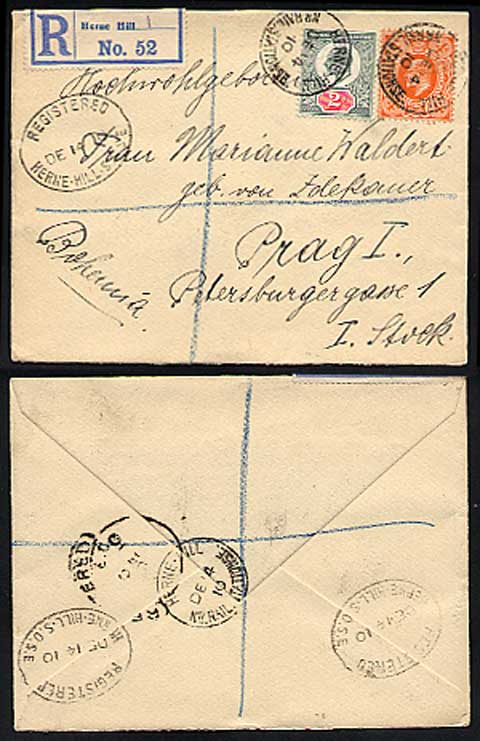 R
Herne Hill
No. 52
HERNE-HILL
REGISTERED
DE 14 10
HERNE-HILL. S.O. S.E.
Hochwohlgebor
Frau Marianne Waldert
geb. von
Prag I.,
Petersburgergasse 1
I. Stock.
Bohemia
ERED
HERNE-HILL
DE 14
10
HERNE-HILL. S.O. S.E.
DE 14 10
REGISTERED
HERNE-HILL. S.O. S.E.
DE 14 10
REGISTERED